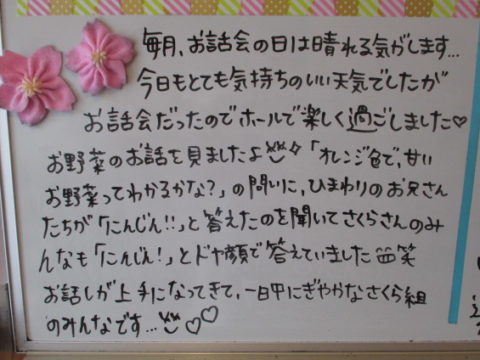 毎月、お話会の日は晴れる気がします…
今日もとても気持ちのいい天気でしたが
お話会だったのでホールで楽しく過ごしました♡
お野菜のお話を見ましたよ 「オレンジ色で、甘い
お野菜ってわかるかな?」の問いに、ひまわりのお兄さん
たちが「にんじん!!」と答えたのを聞いてさくらさんのみ
んなも「にんじん!」とドヤ顔で答えていました 笑
お話しが上手になってきて、一日中にぎやかなさくら組
のみんなです…♡♡